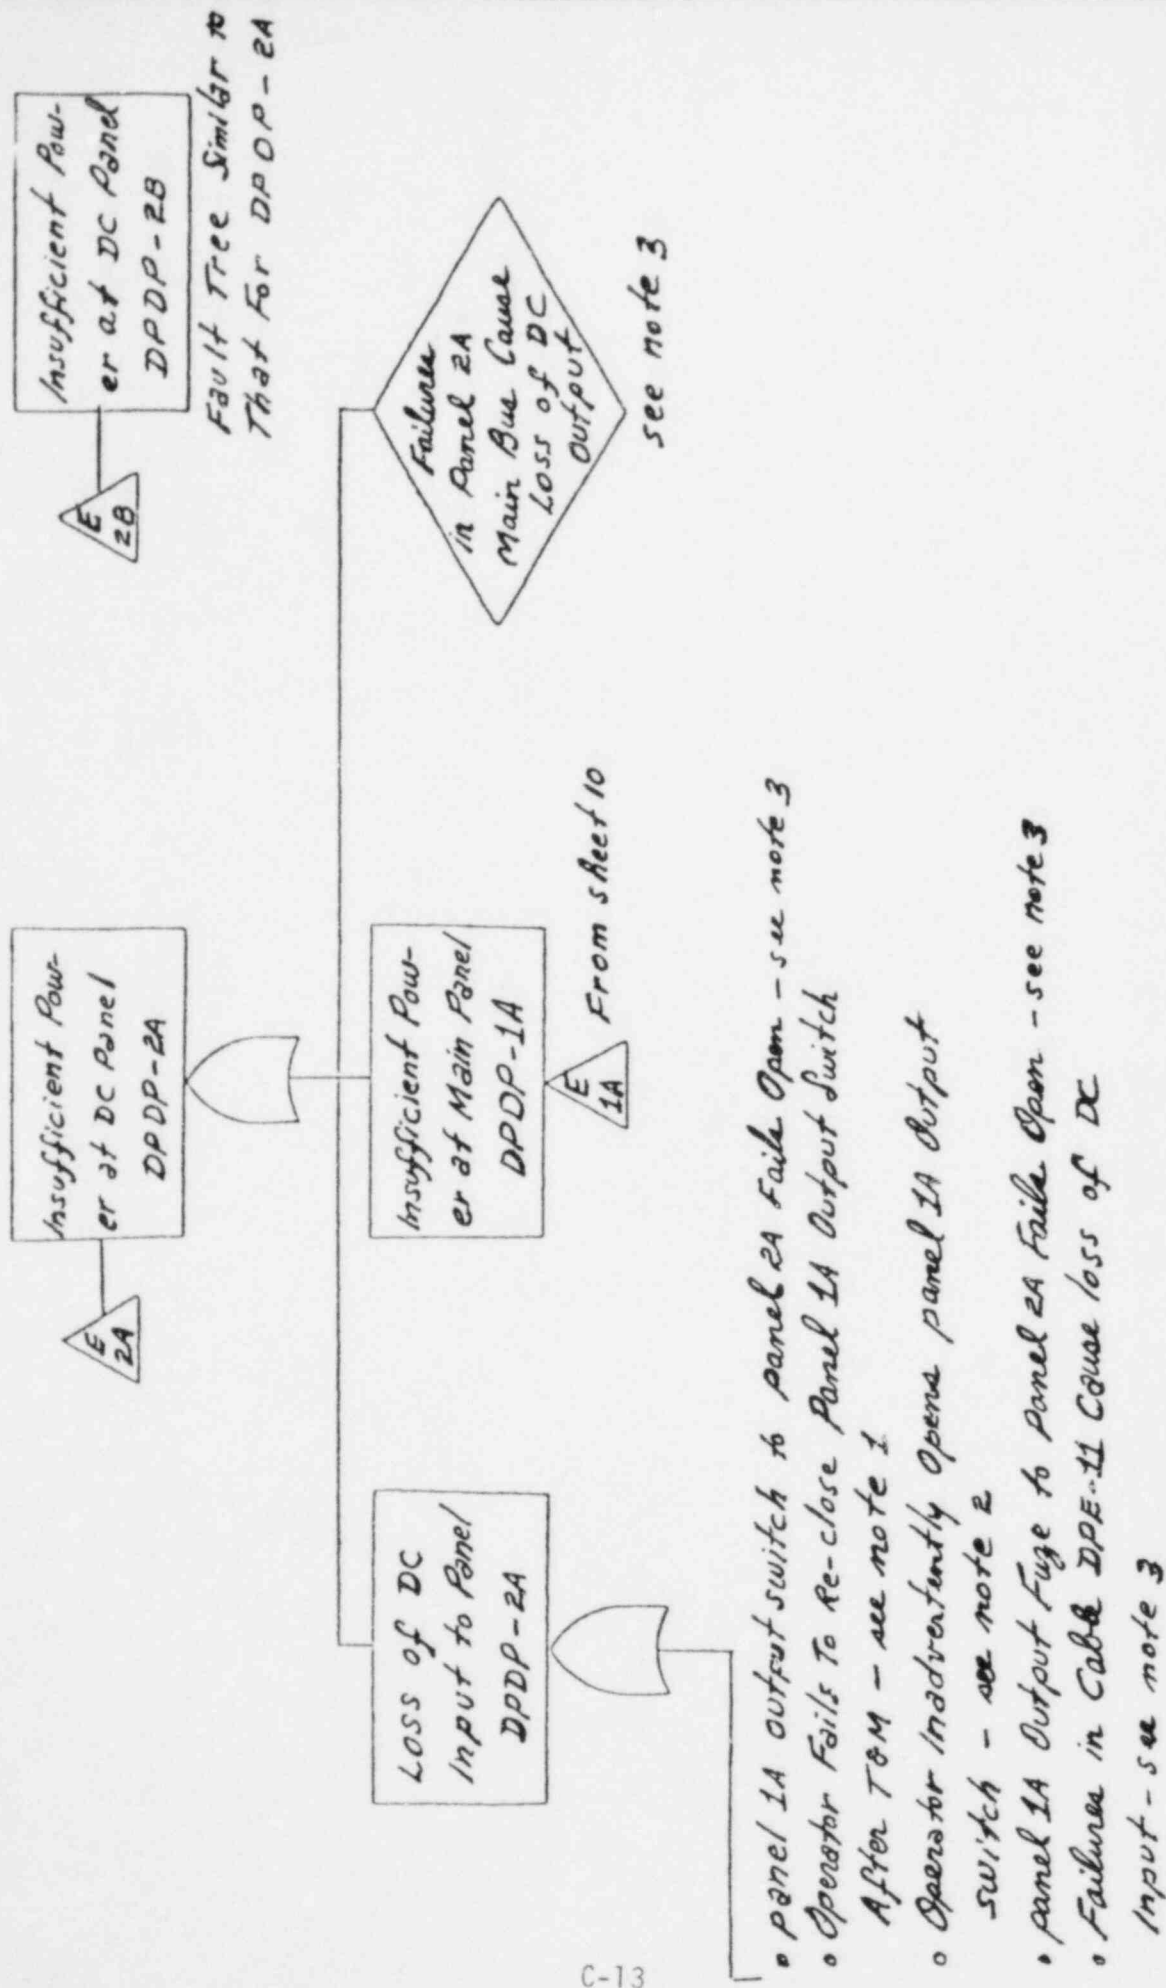 E
2A
Insufficient Pow-
er at DC Panel
DPDP-2A
E
2B
Insufficient Pow-
er at DC Panel
DPDP-2B
Fault Tree Similar to
That For DPDP-2A
Loss of DC
Input to Panel
DPDP-2A
Insufficient Pow-
er at Main Panel
DPDP-1A
E
1A
From sheet 10
Failures
in Panel 2A
Main Bus Cause
Loss of DC
Output
see note 3
• Panel 1A output switch to panel 2A Fails Open - see note 3
• Operator Fails To Re-close Panel 1A Output Switch
After T&M - see note 1
• Operator Inadvertently Opens panel 1A Output
switch - see note 2
• Panel 1A Output Fuze to Panel 2A Fails Open - see note 3
• Failures in Cable DPE-11 Cause loss of DC
Input - see note 3
C-13